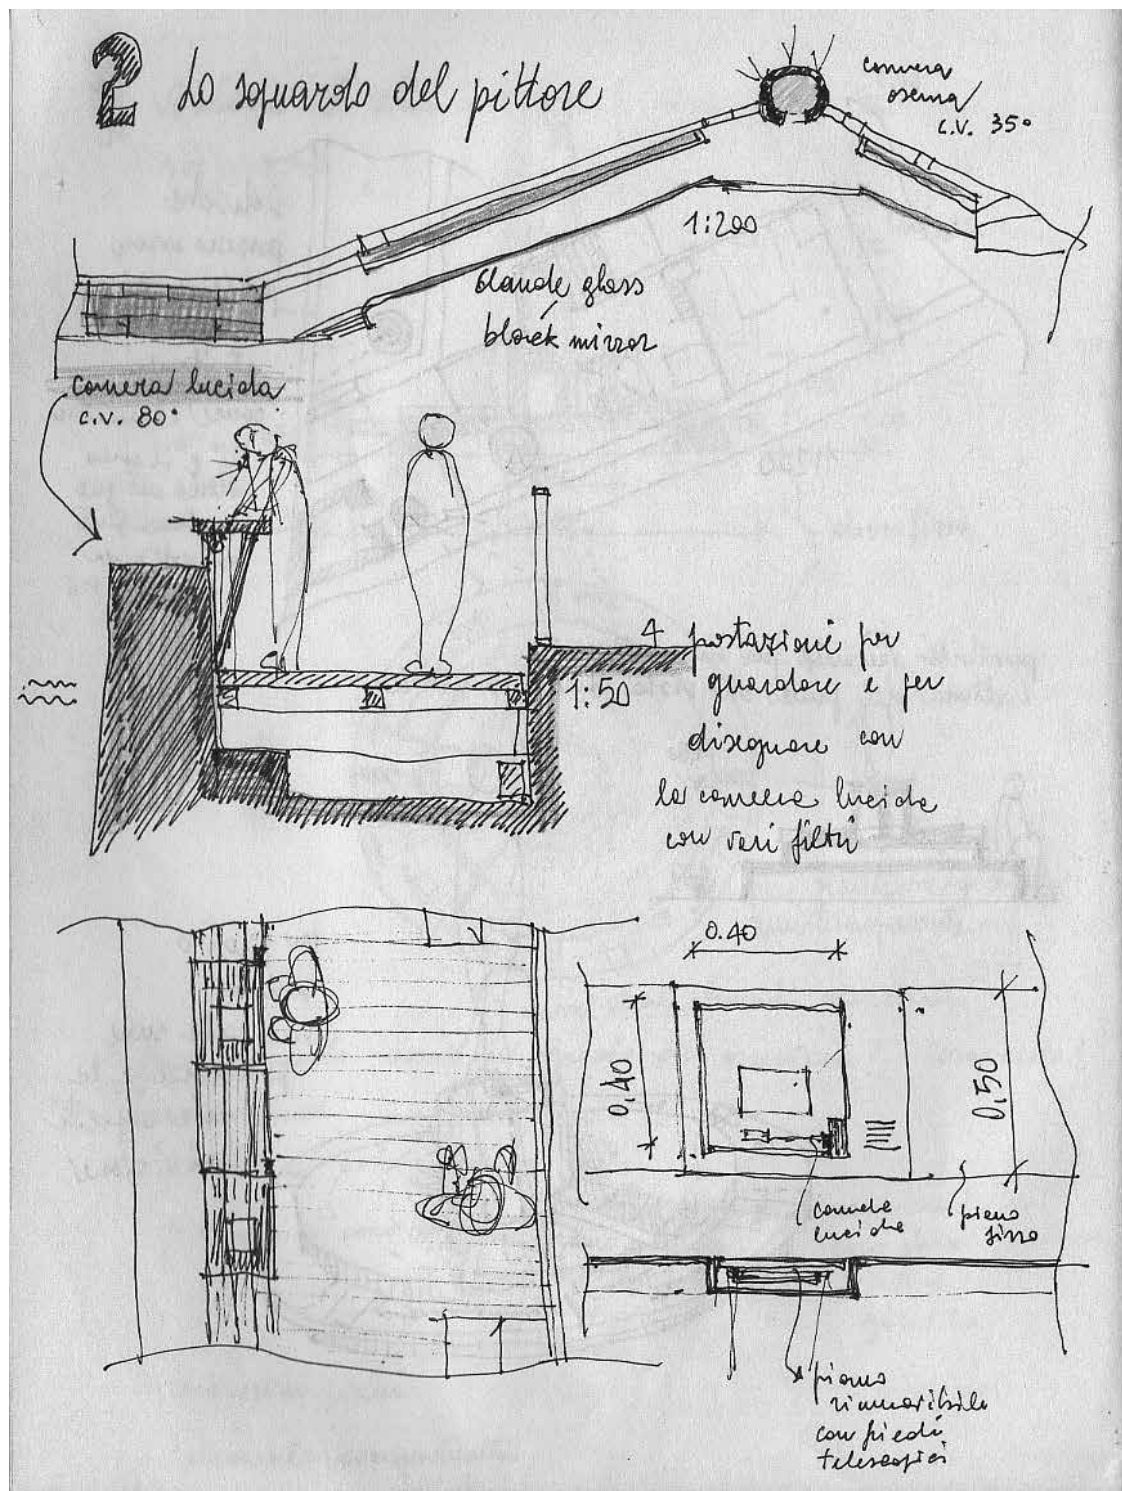 2 Lo sguardo del pittore
camera
oscura
c.v. 35°
1:200
claude glass
black mirror
camera lucida
c.v. 80°
1:50
4 postazioni per
guardare e per
disegnare con
la camera lucida
con vari filtri
0.40
0,40
0,50
camera
lucida
piano
fisso
piano
rimovibile
con piedi
telescopici